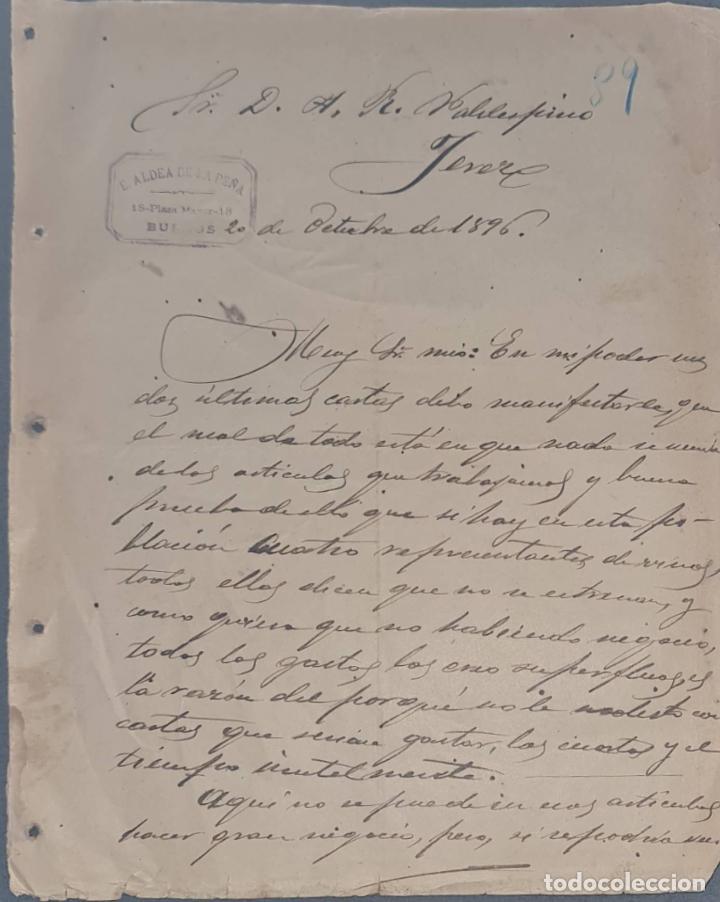 89
Sr. D. A. R. Valdespino
Jerez
E. ALDEA DE LA PEÑA
18-Plaza Mayor-18
BURGOS
20 de Octubre de 1896.
Muy Sr. mio: En mi poder sus
dos últimas cartas debo manifestarle, que
el mal de todo está en que nada se vende
de los articulos que trabajamos y buena
prueba de ello que si hay en esta po-
blación cuatro representantes de vinos,
todos ellos dicen que no se estrenan, y
como quiera que no habiendo negocio,
todos los gastos los creo superfluos, es
la razón del porqué no le molesto con
cartas que serían gastar, los cuartos y el
tiempo inutilmente.
Aquí no se puede en esos artículos
hacer gran negocio, pero, si se podría
todocoleccion.net